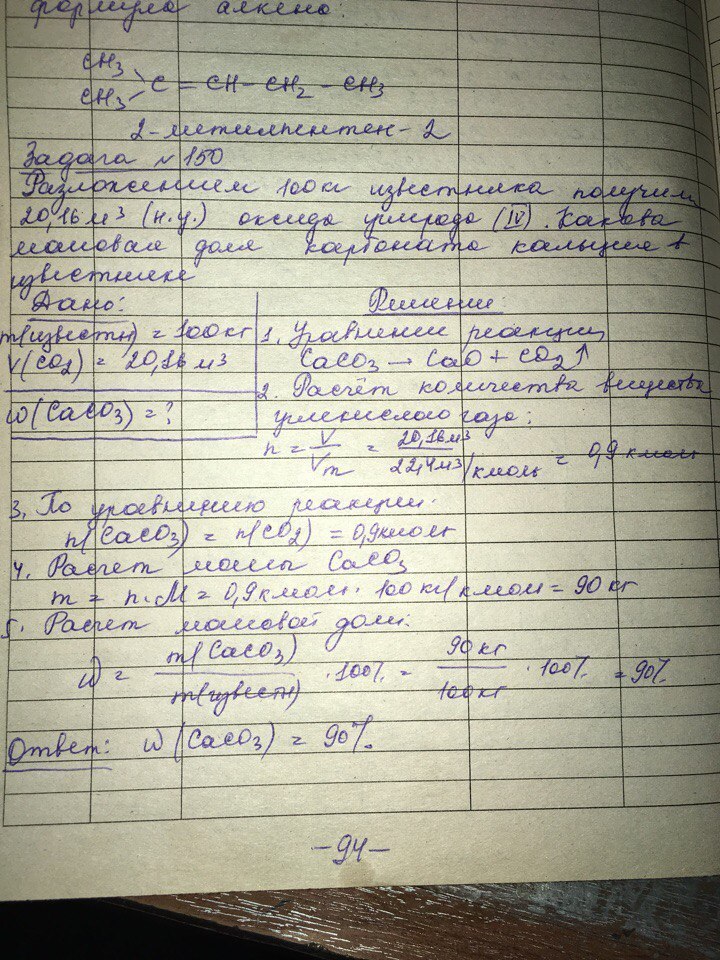 формула алкена:
CH3
CH3 C = CH - CH2 - CH3
2-метилпентен-2
Задача №150
Разложением 100 кг известняка получили
20,16 м³ (н.у.) оксида углерода (IV). Какова
массовая доля карбоната кальция в
известняке
Дано:
m(известн) = 100 кг
V(CO2) = 20,16 м³
ω(CaCO3) = ?
Решение:
1. Уравнение реакции
CaCO3 → CaO + CO2↑
2. Расчёт количества вещества
углекислого газа:
n = V/Vm = 20,16 м³/22,4 м³/кмоль = 0,9 кмоль
3. По уравнению реакции:
n(CaCO3) = n(CO2) = 0,9 кмоль
4. Расчет массы CaCO3
m = n·M = 0,9 кмоль · 100 кг/кмоль = 90 кг
5. Расчет массовой доли:
ω = m(CaCO3)/m(известн) · 100% = 90 кг/100 кг · 100% = 90%
Ответ: ω(CaCO3) = 90%.
-94-